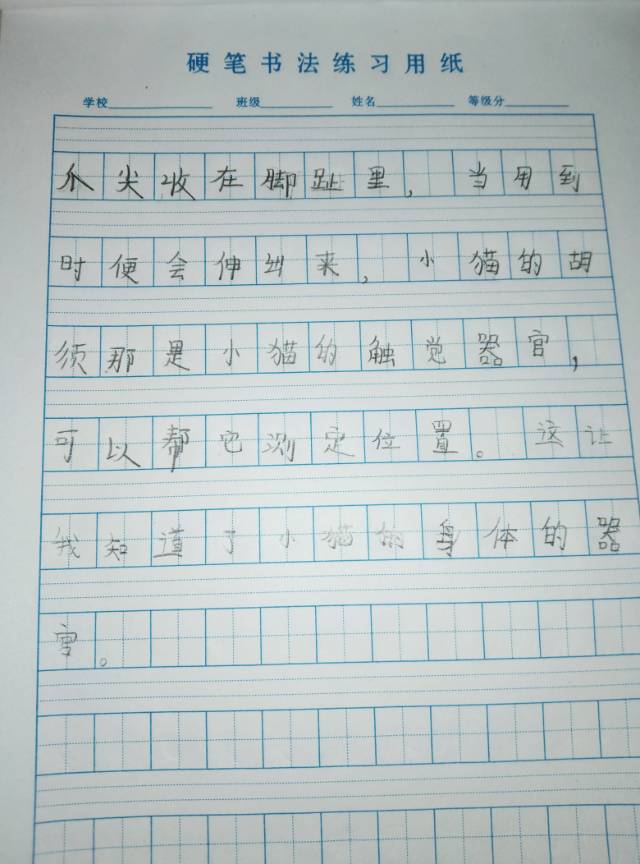 硬笔书法练习用纸
学校 班级 姓名 等级分
爪尖收在脚趾里，当用到
时便会伸出来，小猫的胡
须那是小猫的触觉器官，
可以帮它测定位置。这让
我知道了小猫的身体的器
官。